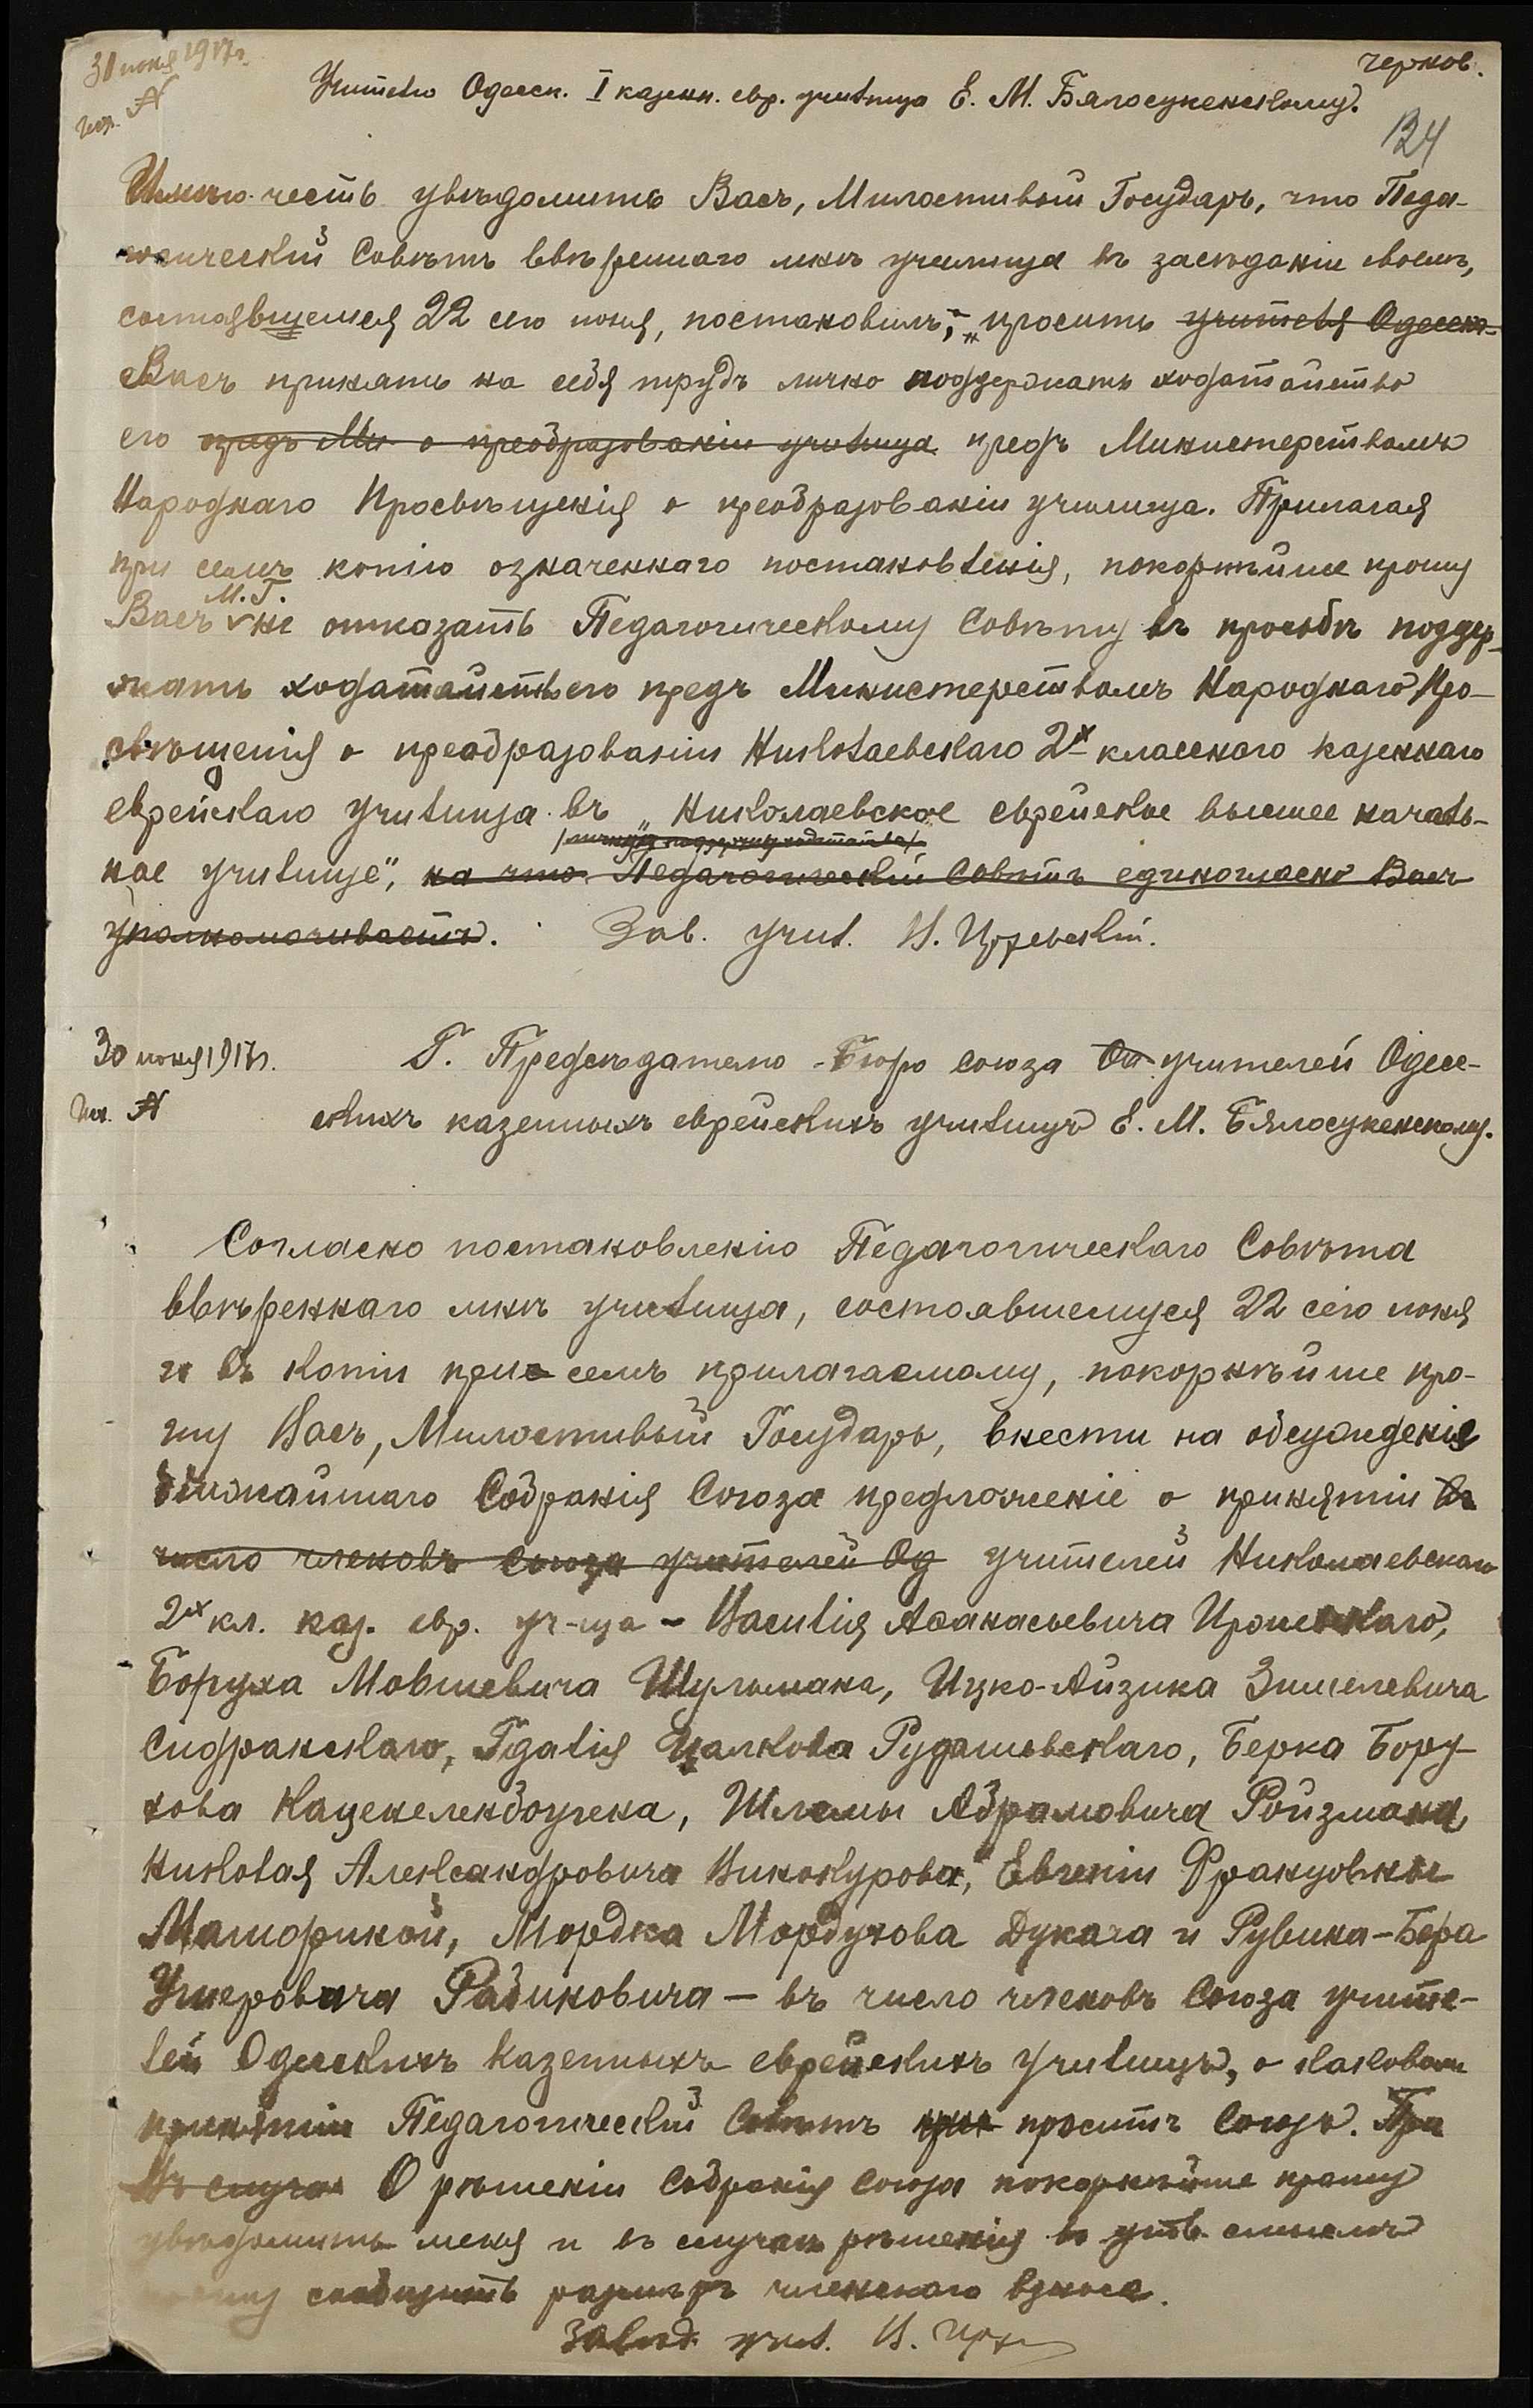 30 июня 1917 г.
чернов.
Исх. №
Учителю Одесск. I казенн. евр. училища Е. М. Бялосукенскому.
124
Имѣю честь увѣдомить Васъ, Милостивый Государь, что Педа-
гогическiй Совѣтъ ввѣреннаго мнѣ училища въ засѣданiи своемъ,
состоявшемся 22 сего июня, постановилъ: „просить учителя Одесск.
Васъ принять на себя трудъ лично поддержать ходатайство
его предъ Мин. о преобразованiи училища предъ Министерствомъ
Народнаго Просвѣщенiя о преобразованiи училища. Прилагая
при семъ копiю означеннаго постановленiя, покорнѣйше прошу
Васъ М. Г. не отказать Педагогическому Совѣту въ просьбѣ поддер-
жать ходатайство его предъ Министерствомъ Народнаго Про-
свѣщенiя о преобразованiи Николаевскаго 2х класснаго казеннаго
еврейскаго училища въ „Николаевское еврейское высшее началь-
ное училище", на что Педагогическiй Совѣтъ единогласно Васъ
уполномочиваетъ. Зав. учил. В.
30 июня 1917 г. Г. Предсѣдателю Бюро союза Од учителей Одес-
Исх. № скихъ казенныхъ еврейскихъ училищъ Е. М. Бялосукенскому.
Согласно постановленiю Педагогическаго Совѣта
ввѣреннаго мнѣ училища, состоявшемуся 22 сего июня
и въ копiи при семъ прилагаемому, покорнѣйше про-
шу Васъ, Милостивый Государь, внести на обсужденiе
ближайшаго Собранiя Союза предложенiе о принятiи въ
число членовъ союза учителей Од учителей Николаевскаго
2х кл. каз. евр. уч-ща – Василiя Аѳанасьевича
Боруха Мовшевича Шульмана, Ицко-Айзика Зиселевича
Сидранскаго, Гдалiя Цалкова Рудашевскаго, Берка Бору-
хова Каценеленбогена, Шлемы Абрамовича Ройзмана,
Николая Александровича Винокурова, Евгенiи Францовны
Машориной, Мордка Мордухова Дукача и Рувина-Бера
Ушеровича Рабиновича – въ число членовъ Союза учите-
лей Одесскихъ казенныхъ еврейскихъ училищъ, о каковомъ
принятiи Педагогическiй Совѣтъ проситъ Союзъ. При
Въ случаѣ О рѣшенiи Собранiя Союза покорнѣйше прошу
увѣдомить меня и въ случаѣ рѣшенiя въ утв. смыслѣ
сообщить размѣръ членскаго взноса.
Завѣд. учил. В.